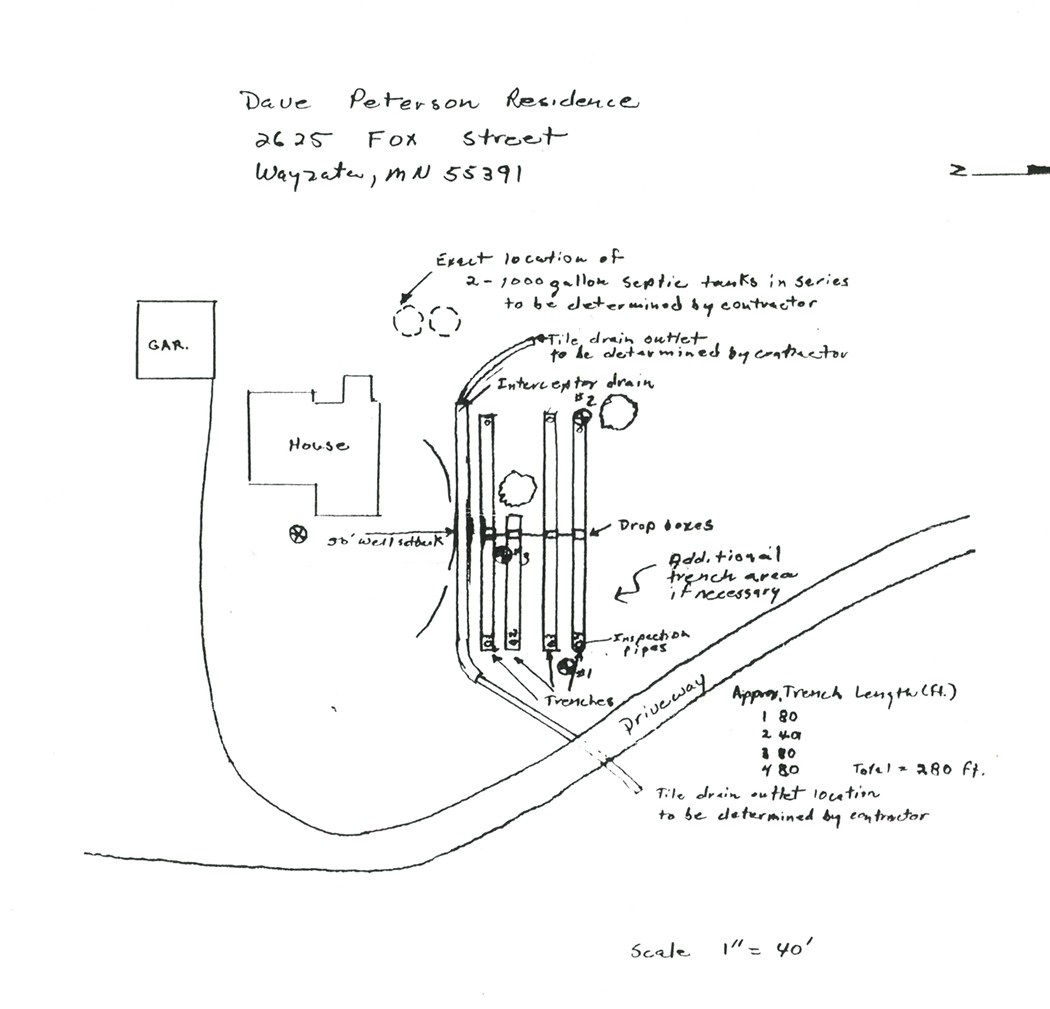 Dave Peterson Residence
2625 Fox Street
Wayzata, MN 55391
Z
Exact location of
2-1000 gallon septic tanks in series
to be determined by contractor
Tile drain outlet
to be determined by contractor
GAR.
Interceptor drain
#2
House
Drop boxes
50' well setback
#3
Additional
trench area
if necessary
Inspection
pipes
#1
Trenches
Driveway
Approx. Trench Length (ft.)
1 80
2 40
3 80
4 80 Total = 280 ft.
Tile drain outlet location
to be determined by contractor
Scale 1" = 40'